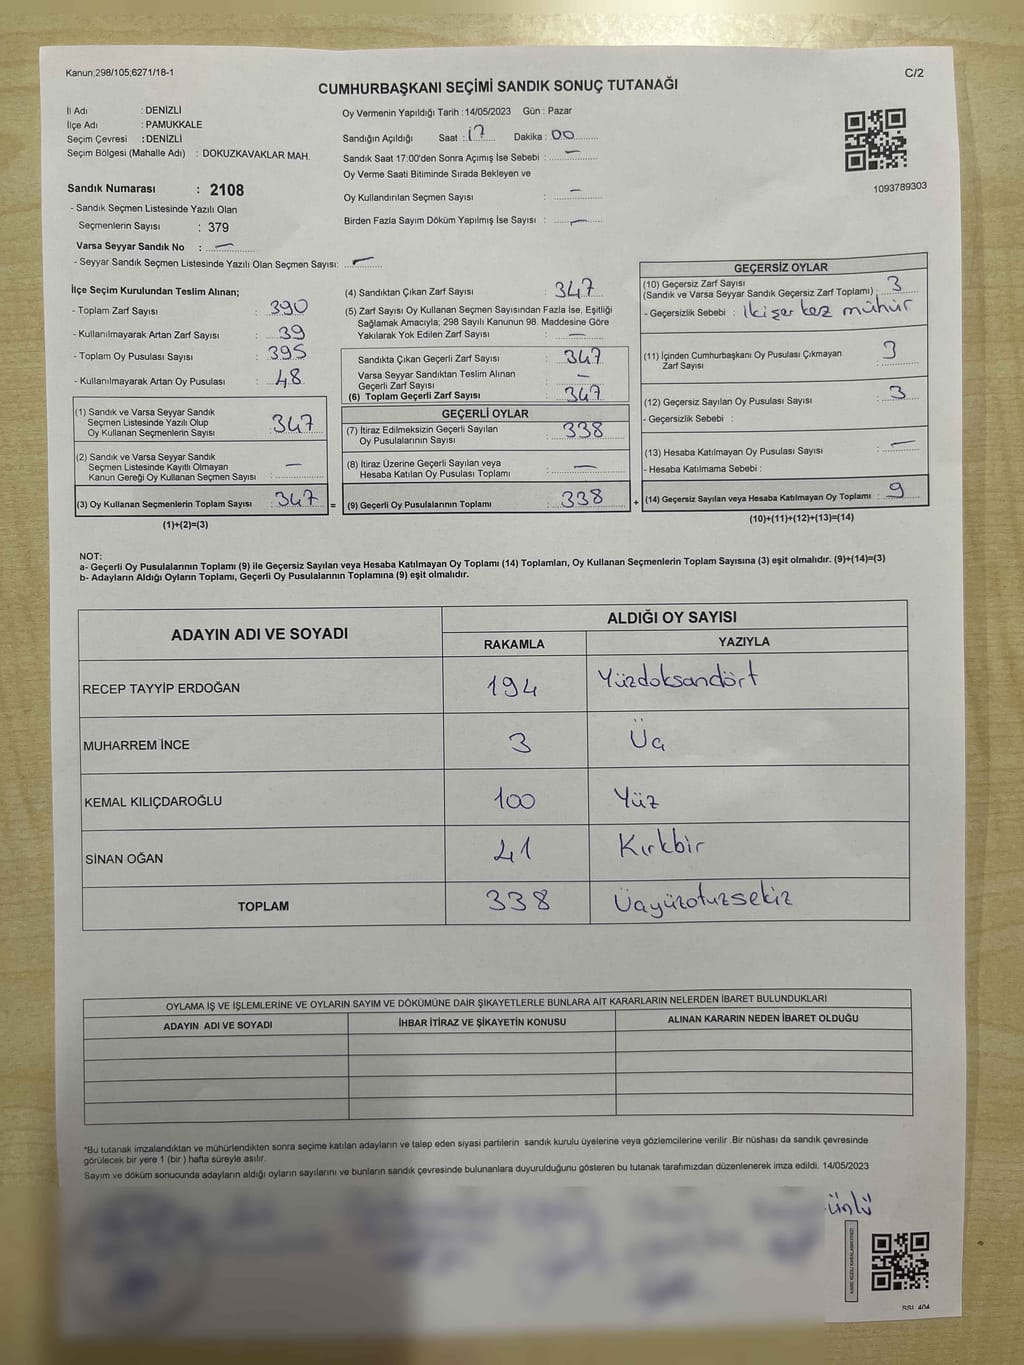 Kanun;298/105;6271/18-1
C/2
CUMHURBAŞKANI SEÇİMİ SANDIK SONUÇ TUTANAĞI
İl Adı : DENİZLİ
İlçe Adı : PAMUKKALE
Seçim Çevresi : DENİZLİ
Seçim Bölgesi (Mahalle Adı) : DOKUZKAVAKLAR MAH.
Sandık Numarası : 2108
- Sandık Seçmen Listesinde Yazılı Olan
Seçmenlerin Sayısı : 379
Varsa Seyyar Sandık No : —
- Seyyar Sandık Seçmen Listesinde Yazılı Olan Seçmen Sayısı: —
Oy Vermenin Yapıldığı Tarih : 14/05/2023 Gün : Pazar
Sandığın Açıldığı Saat : 17 Dakika : 00
Sandık Saat 17:00'den Sonra Açımış İse Sebebi : —
Oy Verme Saati Bitiminde Sırada Bekleyen ve
Oy Kullandırılan Seçmen Sayısı : —
Birden Fazla Sayım Döküm Yapılmış İse Sayısı : —
1093789303
İlçe Seçim Kurulundan Teslim Alınan;
- Toplam Zarf Sayısı : 390
- Kullanılmayarak Artan Zarf Sayısı : 39
- Toplam Oy Pusulası Sayısı : 395
- Kullanılmayarak Artan Oy Pusulası : 48
(1) Sandık ve Varsa Seyyar Sandık
Seçmen Listesinde Yazılı Olup
Oy Kullanan Seçmenlerin Sayısı : 347
(2) Sandık ve Varsa Seyyar Sandık
Seçmen Listesinde Kayıtlı Olmayan
Kanun Gereği Oy Kullanan Seçmen Sayısı : —
(3) Oy Kullanan Seçmenlerin Toplam Sayısı : 347 =
(1)+(2)=(3)
(4) Sandıktan Çıkan Zarf Sayısı : 347
(5) Zarf Sayısı Oy Kullanan Seçmen Sayısından Fazla İse, Eşitliği
Sağlamak Amacıyla; 298 Sayılı Kanunun 98. Maddesine Göre
Yakılarak Yok Edilen Zarf Sayısı : —
Sandıkta Çıkan Geçerli Zarf Sayısı : 347
Varsa Seyyar Sandıktan Teslim Alınan
Geçerli Zarf Sayısı : —
(6) Toplam Geçerli Zarf Sayısı : 347
GEÇERLİ OYLAR
(7) İtiraz Edilmeksizin Geçerli Sayılan
Oy Pusulalarının Sayısı : 338
(8) İtiraz Üzerine Geçerli Sayılan veya
Hesaba Katılan Oy Pusulası Toplamı : —
(9) Geçerli Oy Pusulalarının Toplamı : 338 +
GEÇERSİZ OYLAR
(10) Geçersiz Zarf Sayısı
(Sandık ve Varsa Seyyar Sandık Geçersiz Zarf Toplamı) : 3
- Geçersizlik Sebebi : İkişer kez mühür
(11) İçinden Cumhurbaşkanı Oy Pusulası Çıkmayan
Zarf Sayısı : 3
(12) Geçersiz Sayılan Oy Pusulası Sayısı : 3
- Geçersizlik Sebebi :
(13) Hesaba Katılmayan Oy Pusulası Sayısı : —
- Hesaba Katılmama Sebebi :
(14) Geçersiz Sayılan veya Hesaba Katılmayan Oy Toplamı : 9
(10)+(11)+(12)+(13)=(14)
NOT:
a- Geçerli Oy Pusulalarının Toplamı (9) ile Geçersiz Sayılan veya Hesaba Katılmayan Oy Toplamı (14) Toplamları, Oy Kullanan Seçmenlerin Toplam Sayısına (3) eşit olmalıdır. (9)+(14)=(3)
b- Adayların Aldığı Oyların Toplamı, Geçerli Oy Pusulalarının Toplamına (9) eşit olmalıdır.
ADAYIN ADI VE SOYADI ALDIĞI OY SAYISI
RAKAMLA YAZIYLA
RECEP TAYYİP ERDOĞAN 194 Yüzdoksandört
MUHARREM İNCE 3 Üç
KEMAL KILIÇDAROĞLU 100 Yüz
SİNAN OĞAN 41 Kırkbir
TOPLAM 338 Üçyüzotuzsekiz
OYLAMA İŞ VE İŞLEMLERİNE VE OYLARIN SAYIM VE DÖKÜMÜNE DAİR ŞİKAYETLERLE BUNLARA AİT KARARLARIN NELERDEN İBARET BULUNDUKLARI
ADAYIN ADI VE SOYADI İHBAR İTİRAZ VE ŞİKAYETİN KONUSU ALINAN KARARIN NEDEN İBARET OLDUĞU
"Bu tutanak imzalandıktan ve mühürlendikten sonra seçime katılan adayların ve talep eden siyasi partilerin sandık kurulu üyelerine veya gözlemcilerine verilir .Bir nüshası da sandık çevresinde
görülecek bir yere 1 (bir ) hafta süreyle asılır.
Sayım ve döküm sonucunda adayların aldığı oyların sayılarını ve bunların sandık çevresinde bulunanlara duyurulduğunu gösteren bu tutanak tarafımızdan düzenlenerek imza edildi. 14/05/2023
ünlü